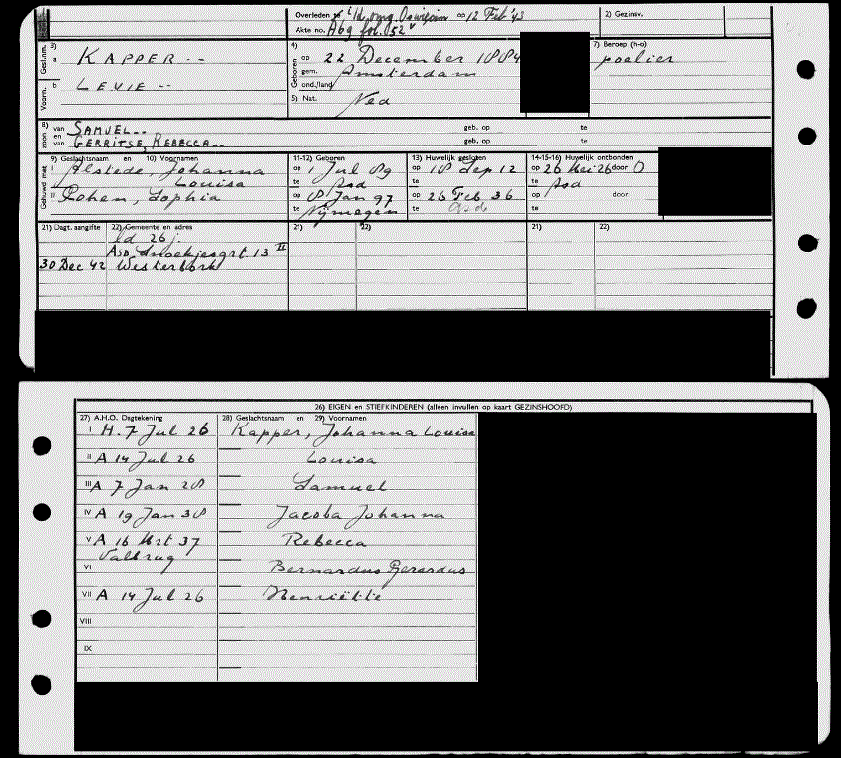 Overleden te "i/d omg. Oswiecim" op 12 Feb '43
2) Gezinsv.
Akte no. A69 fol. 52v
Gesl.nm. 3) a KAPPER --
4) Geboren op 22 December 1884
7) Beroep (h-o)
poelier
gem. Amsterdam
Voorn. b LEVIE --
ond./land
5) Nat. Ned
8) zoon van SAMUEL -- geb. op te
en van GERRITSE, REBECCA -- geb. op te
9) Geslachtsnaam en 10) Voornamen
11-12) Geboren
13) Huwelijk gesloten
14-15-16) Huwelijk ontbonden
Gehuwd met I Alstede, Johanna Louisa
op 1 Jul 89
te Asd
op 18 Sep 12
te
op 26 Mei 26 door O
te Asd
II Cohen, Sophia
op 18 Jan 97
te Nijmegen
op 26 Feb 36
te Asd
op door
te
21) Dagt. aangifte 22) Gemeente en adres 21) 22) 21) 22)
Id 26 j.
Asd. Snoekjesgrt. 13 II
30 Dec 42 Westerbork
26) EIGEN en STIEFKINDEREN (alleen invullen op kaart GEZINSHOOFD)
27) A.H.O. Dagtekening 28) Geslachtsnaam en 29) Voornamen
I H. 7 Jul 26 Kapper, Johanna Louisa
II A 14 Jul 26 Louisa
III A 7 Jan 28 Samuel
IV A 19 Jan 38 Jacoba Johanna
V A 16 Mrt 37 Rebecca
Valbrug
VI Bernardus Gerardus
VII A 14 Jul 26 Henriëtte
VIII
IX